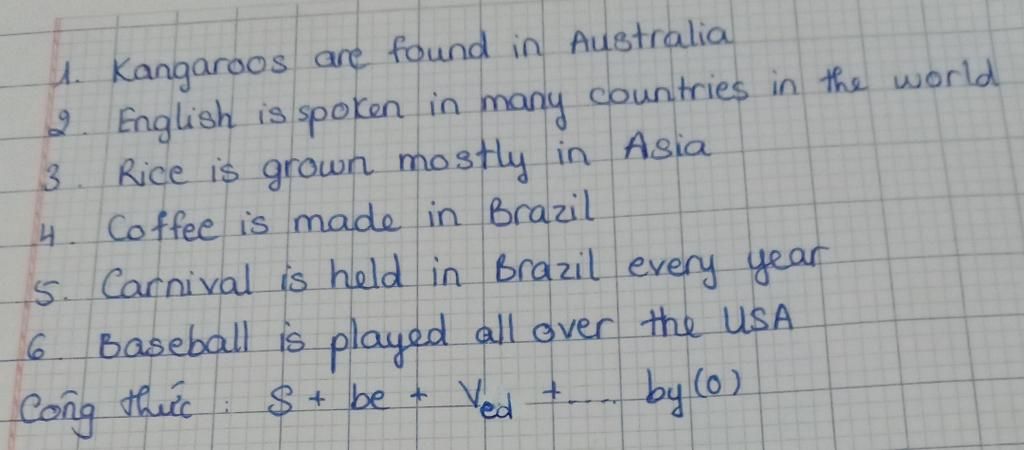 1. Kangaroos are found in Australia
2. English is spoken in many countries in the world
3. Rice is grown mostly in Asia
4. Coffee is made in Brazil
5. Carnival is held in Brazil every year
6 Baseball is played all over the USA
Công thức : S + be + Ved + .... by (O)